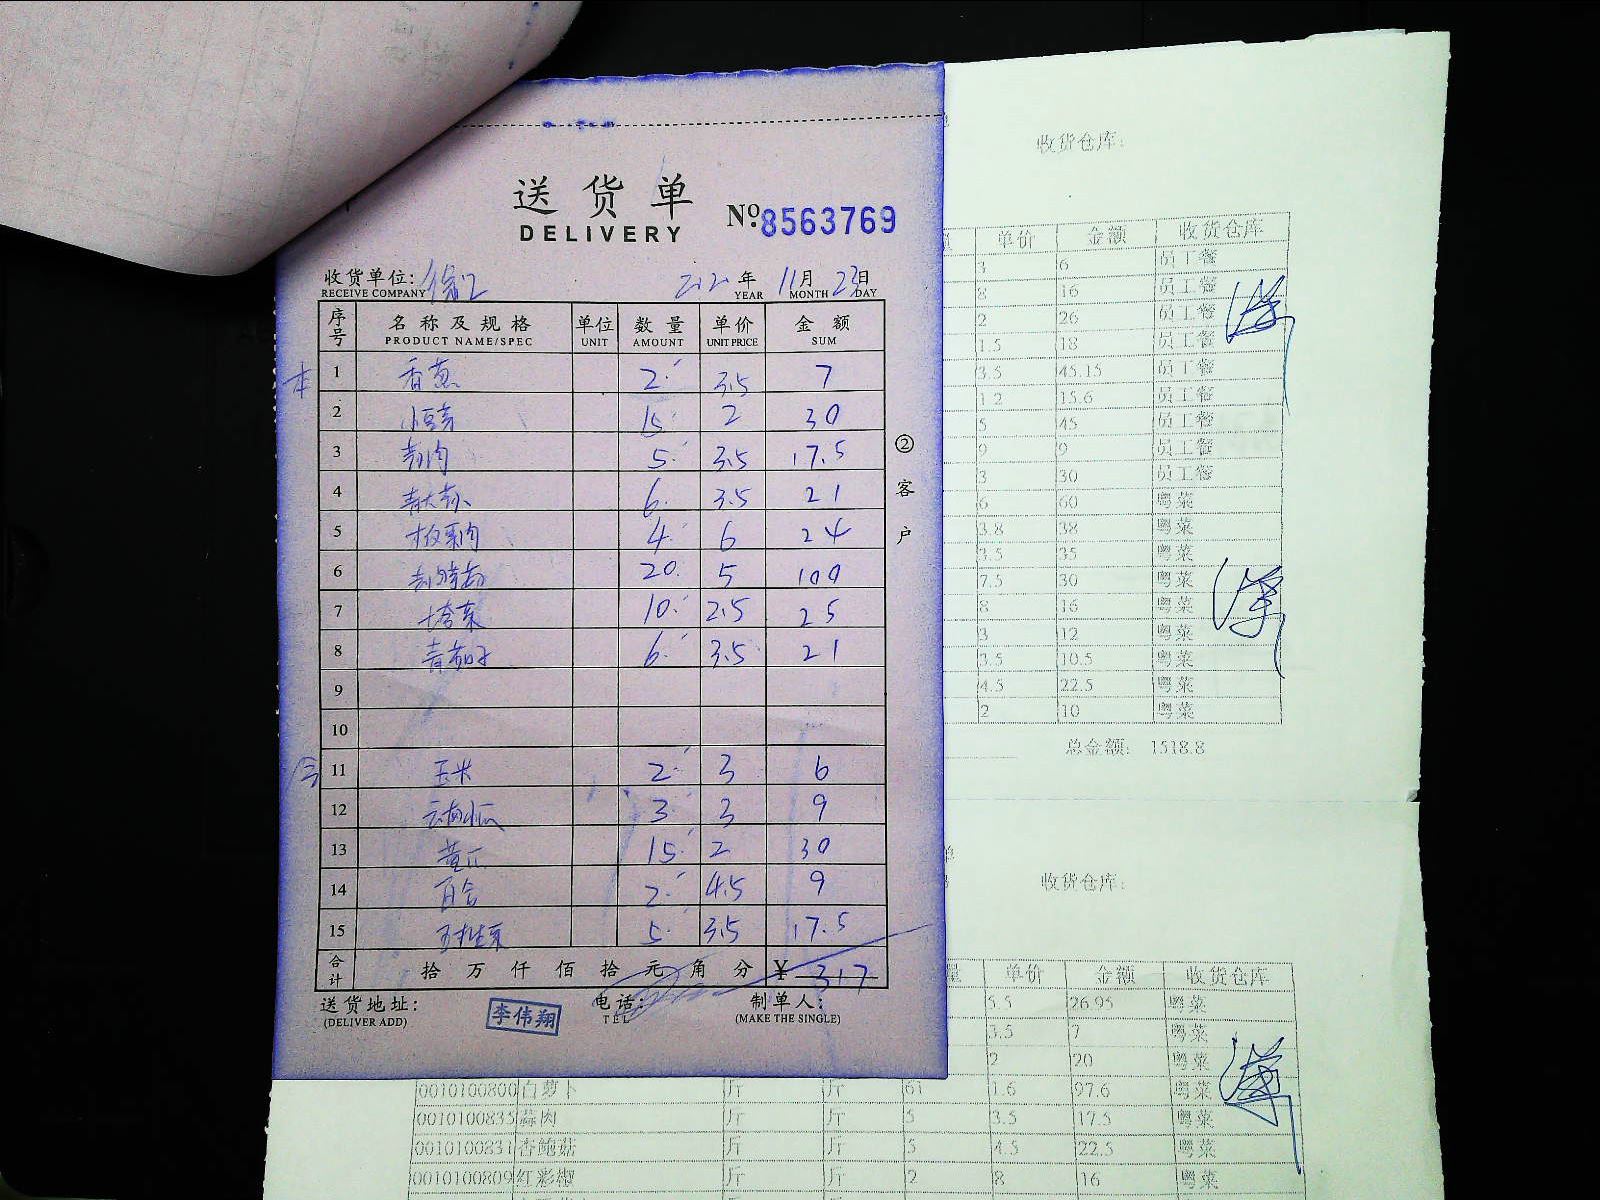 送货单
DELIVERY
№ 8563769
收货单位:
RECEIVE COMPANY
年 11月 23日
YEAR MONTH DAY
序号 名称及规格 单位 数量 单价 金额
PRODUCT NAME/SPEC UNIT AMOUNT UNIT PRICE SUM
本
1 香葱 2 3.5 7
2 小豆芽 15 2 30
3 蒜肉 5 3.5 17.5
4 3.5 21 6
5 板栗肉 4 6 24
6 20 5 100
7 10 2.5 25
8 青茄子 6 3.5 21
9
10
11 玉米 2 3 6
12 云南小瓜 3 3 9
13 黄瓜 15 2 30
14 百合 2 4.5 9
15 5 3.5 17.5
合计 拾万仟佰拾元角分 ¥ 317
送货地址: 电话: 制单人:
(DELIVER ADD) TEL (MAKE THE SINGLE)
李伟翔
②客户
收货仓库:
单价 金额 收货仓库
3 6 员工餐
8 16 员工餐
2 26 员工餐
1.5 18 员工餐
3.5 45.15 员工餐
1.2 15.6 员工餐
5 45 员工餐
9 9 员工餐
3 30 员工餐
6 60 粤菜
3.8 38 粤菜
3.5 35 粤菜
7.5 30 粤菜
8 16 粤菜
3 12 粤菜
3.5 10.5 粤菜
4.5 22.5 粤菜
2 10 粤菜
总金额: 1518.8
收货仓库:
单价 金额 收货仓库
5.5 26.95 粤菜
3.5 7 粤菜
2 20 粤菜
0010100800 白萝卜 斤 斤 61 1.6 97.6 粤菜
0010100835 蒜肉 斤 斤 5 3.5 17.5 粤菜
0010100831 杏鲍菇 斤 斤 5 4.5 22.5 粤菜
0010100809 红彩椒 斤 斤 2 8 16 粤菜